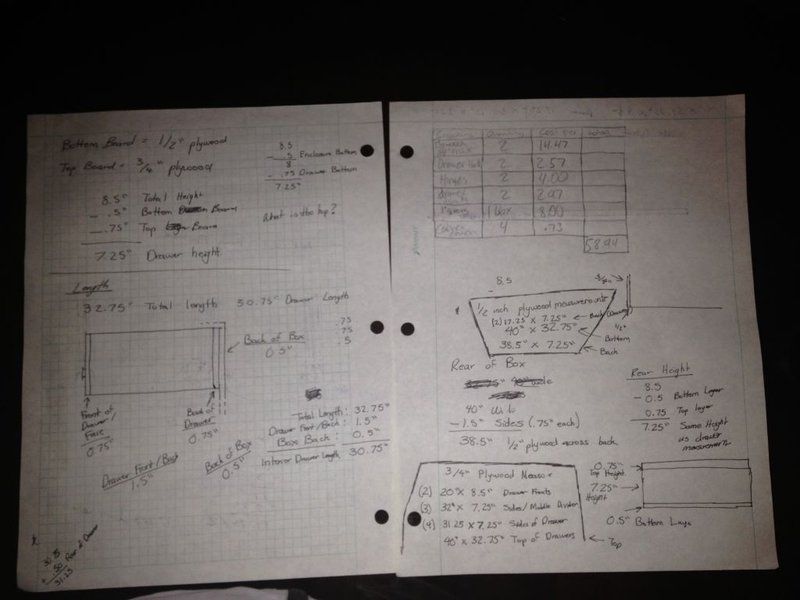 Bottom Board = 1/2" plywood
Top Board = 3/4" plywood
8.5" Total Height
- .5" Bottom Board
- .75" Top Board
7.25" Drawer height
8.5
- .5 Enclosure Bottom
8
- .75 Drawer Bottom
7.25"
What is the top?
Length
32.75" Total length
30.75" Drawer Length
.75
.75
.5
Back of Box
0.5"
Front of Drawer / Face
0.75"
Back of Drawer
0.75"
Drawer Front/Back
1.5"
Back of Box
0.5"
Total Length: 32.75"
Drawer Front/Back: 1.5"
Boxe Back: 0.5"
Interior Drawer Length 30.75"
30.75
+ .50 Rear of Drawer
31.25
2 14.47
2 2.57
Hinges 2 4.00
2 2.97
1 box 8.00
4 .73
58.94
8.5
1/2 inch plywood measurements
(2) 17.25" x 7.25"
40" x 32.75" Bottom
38.5" x 7.25" Back
1/2"
Rear of Box
40" Wide
- 1.5" Sides (.75" each)
38.5" 1/2" plywood across back.
Rear Height
8.5
- 0.5 Bottom Layer
0.75 Top layer
7.25" Same Height as drawer measurements
3/4" Plywood Measure
(2) 20" x 8.5" Drawer Fronts
(3) 32" x 7.25" Sides/Middle Divider
(4) 31.25 x 7.25" Sides of Drawer
40" x 32.75" Top of Drawers
Top
0.75" Top Height
7.25" Height
0.5" Bottom Layer